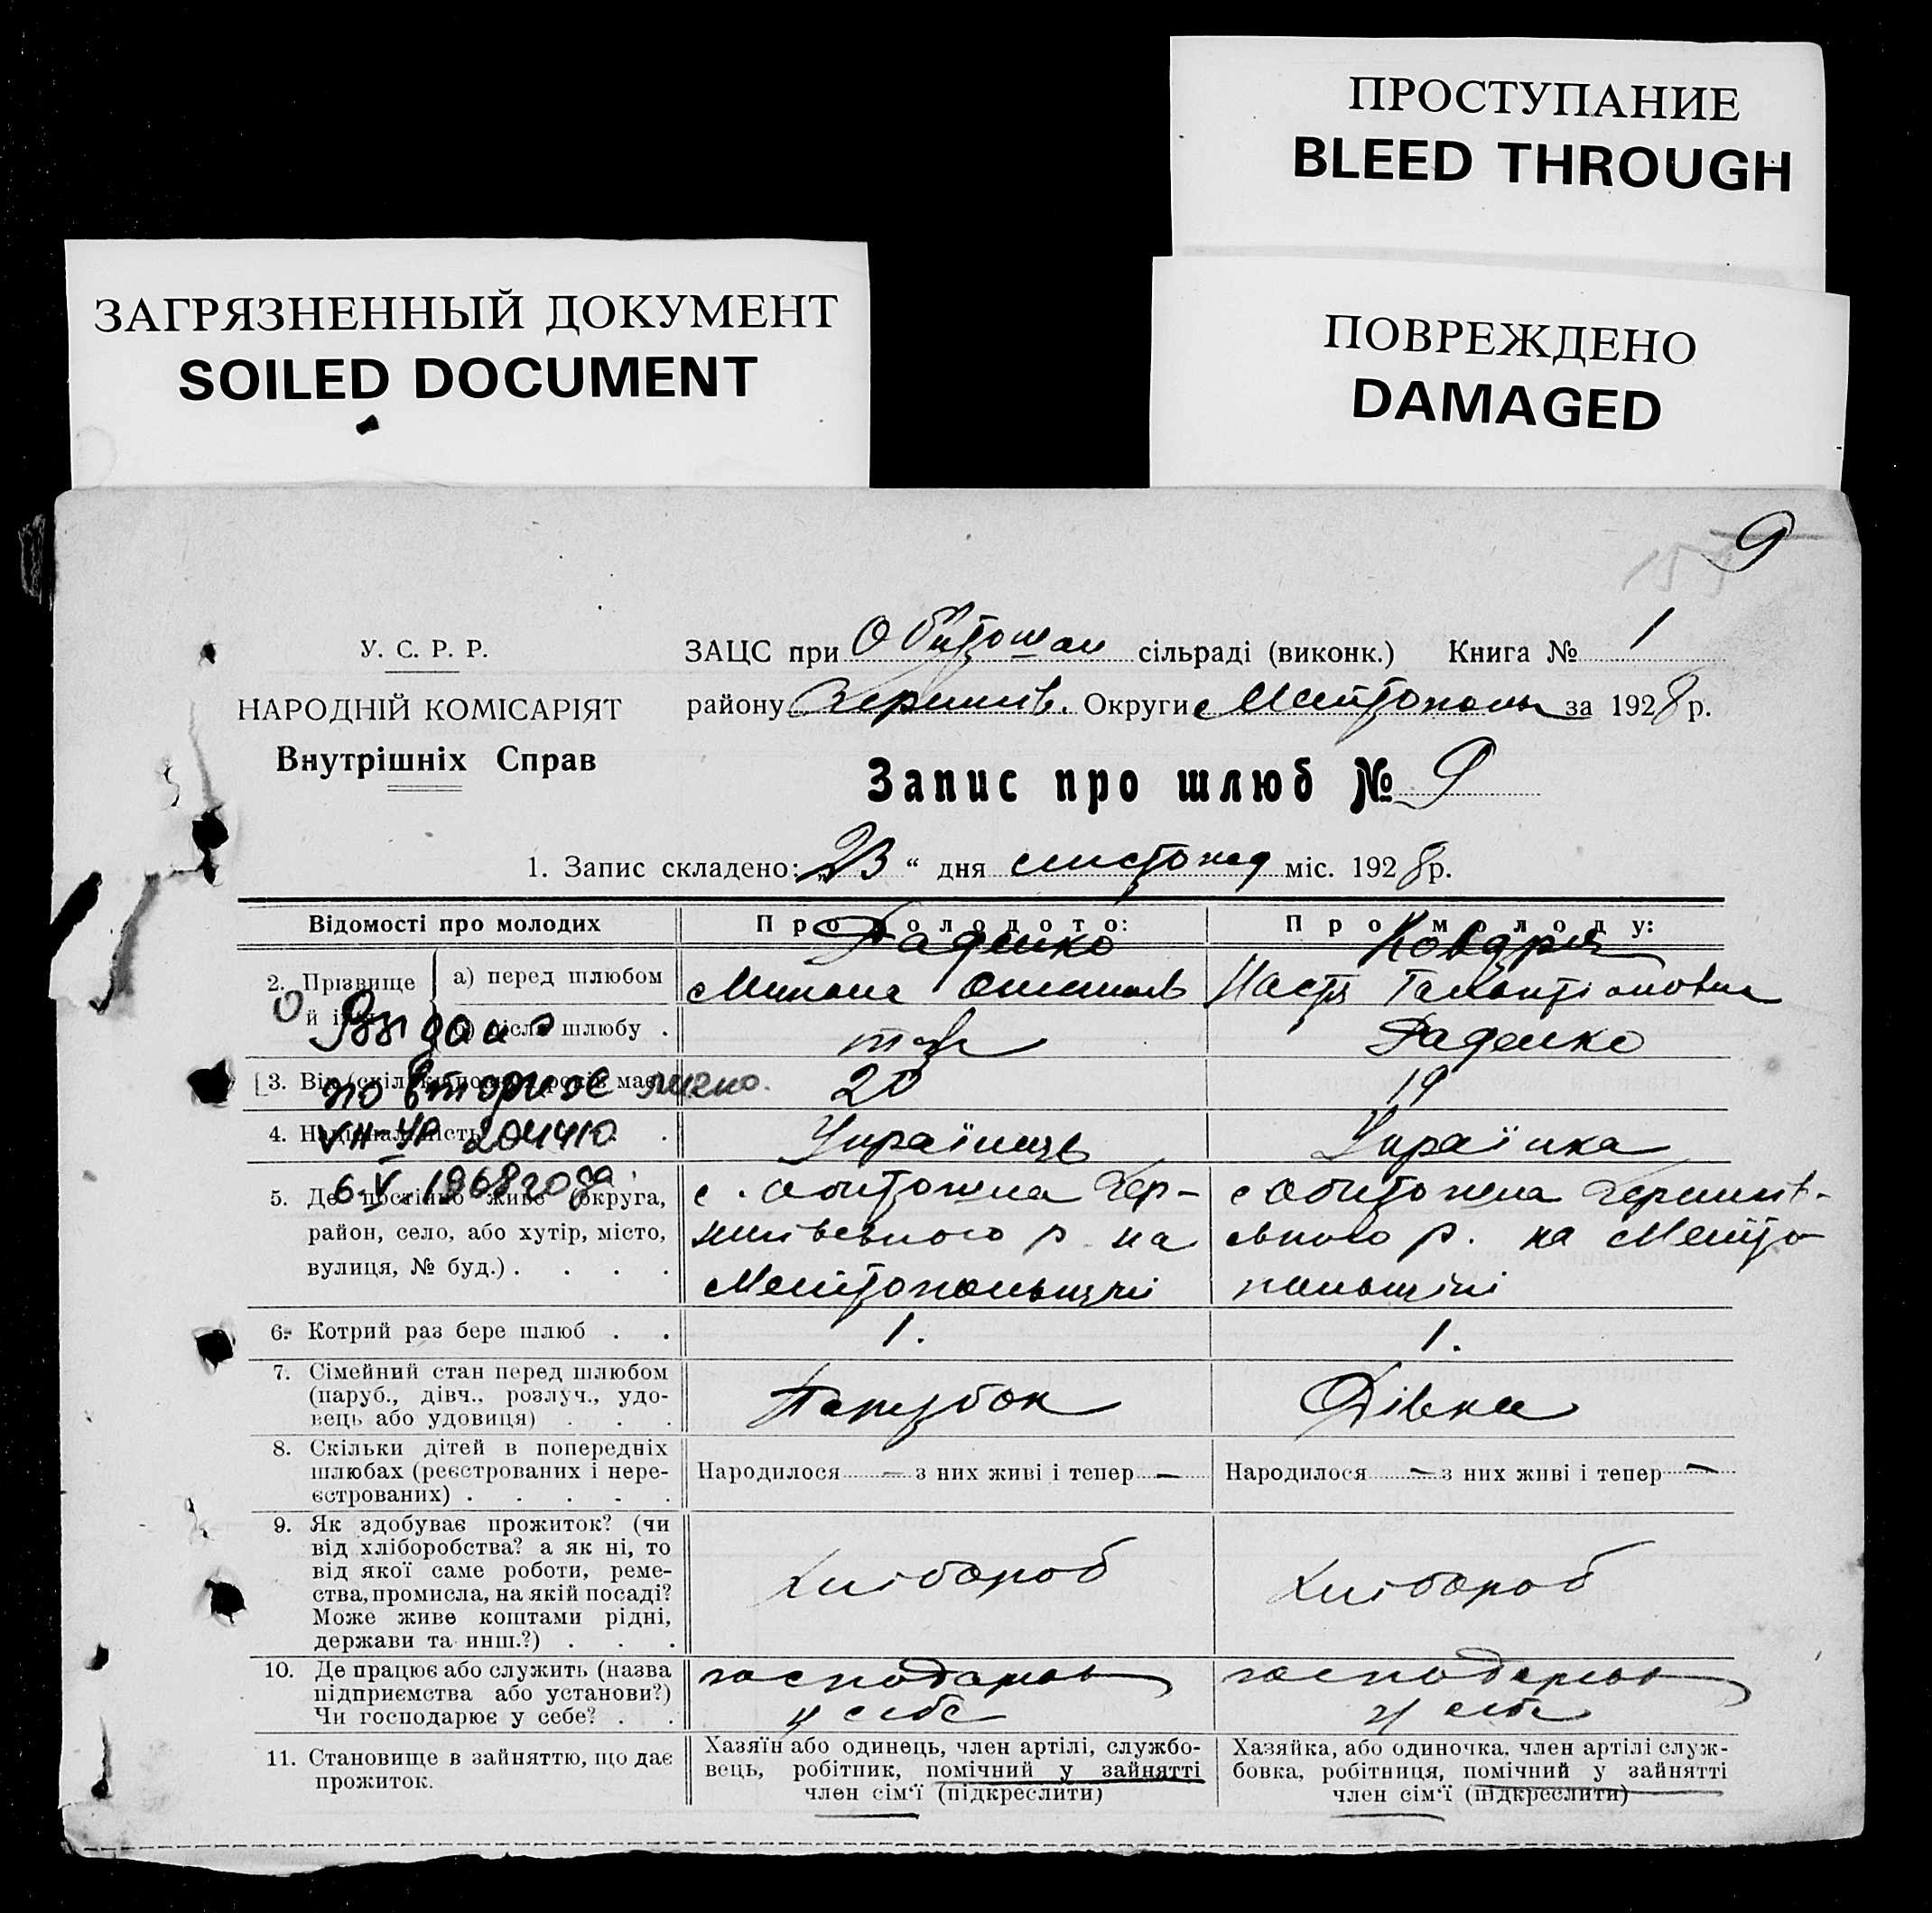 ПРОСТУПАНИЕ
BLEED THROUGH
ЗАГРЯЗНЕННЫЙ ДОКУМЕНТ
SOILED DOCUMENT
ПОВРЕЖДЕНО
DAMAGED
9
У. С. Р. Р.
НАРОДНІЙ КОМІСАРІЯТ
Внутрішніх Справ
ЗАЦС при сільраді (виконк.) Книга № 1
району Округи за 1928 р.
Запис про шлюб № 9
1. Запис складено: „23“ дня листопад міс. 1928 р.
Відомості про молодих
Про молодого:
Про молоду:
2. Прізвище й ім'я
а) перед шлюбом
Раденко
Ковдря
Настя
б) після шлюбу .
Раденко
Выдано
повторное
VII-УР 204410
6.V 1968 года.
3. Вік (скільки повних років має)
20
19
4. Національність
Українець
Українка
5. Де постійно живе (округа,
район, село, або хутір, місто,
вулиця, № буд.) . . . .
с. Обиточна Чер-
нигівського р. на
Мелітопольщині
с Обиточна Чернигів-
ського р. на Меліто
польщині
6. Котрий раз бере шлюб . .
1.
1.
7. Сімейний стан перед шлюбом
(паруб., дівч., розлуч., удо-
вець або удовиця) . . .
Парубок
Дівка
8. Скільки дітей в попередніх
шлюбах (реєстрованих і нере-
єстрованих) . . . . .
Народилося — з них живі і тепер —
Народилося — з них живі і тепер —
9. Як здобуває прожиток? (чи
від хліборобства? а як ні, то
від якої саме роботи, реме-
ства, промисла, на якій посаді?
Може живе коштами рідні,
держави та инш.?) . . .
Хлібороб
Хлібороб
10. Де працює або служить (назва
підприємства або установи?)
Чи господарює у себе? . .
у себе
у себе
11. Становище в зайняттю, що дає
прожиток.
Хазяїн або одинець, член артілі, службо-
вець, робітник, помічний у зайнятті
член сім'ї (підкреслити)
Хазяйка, або одиночка, член артілі служ-
бовка, робітниця, помічний у зайнятті
член сім'ї (підкреслити)